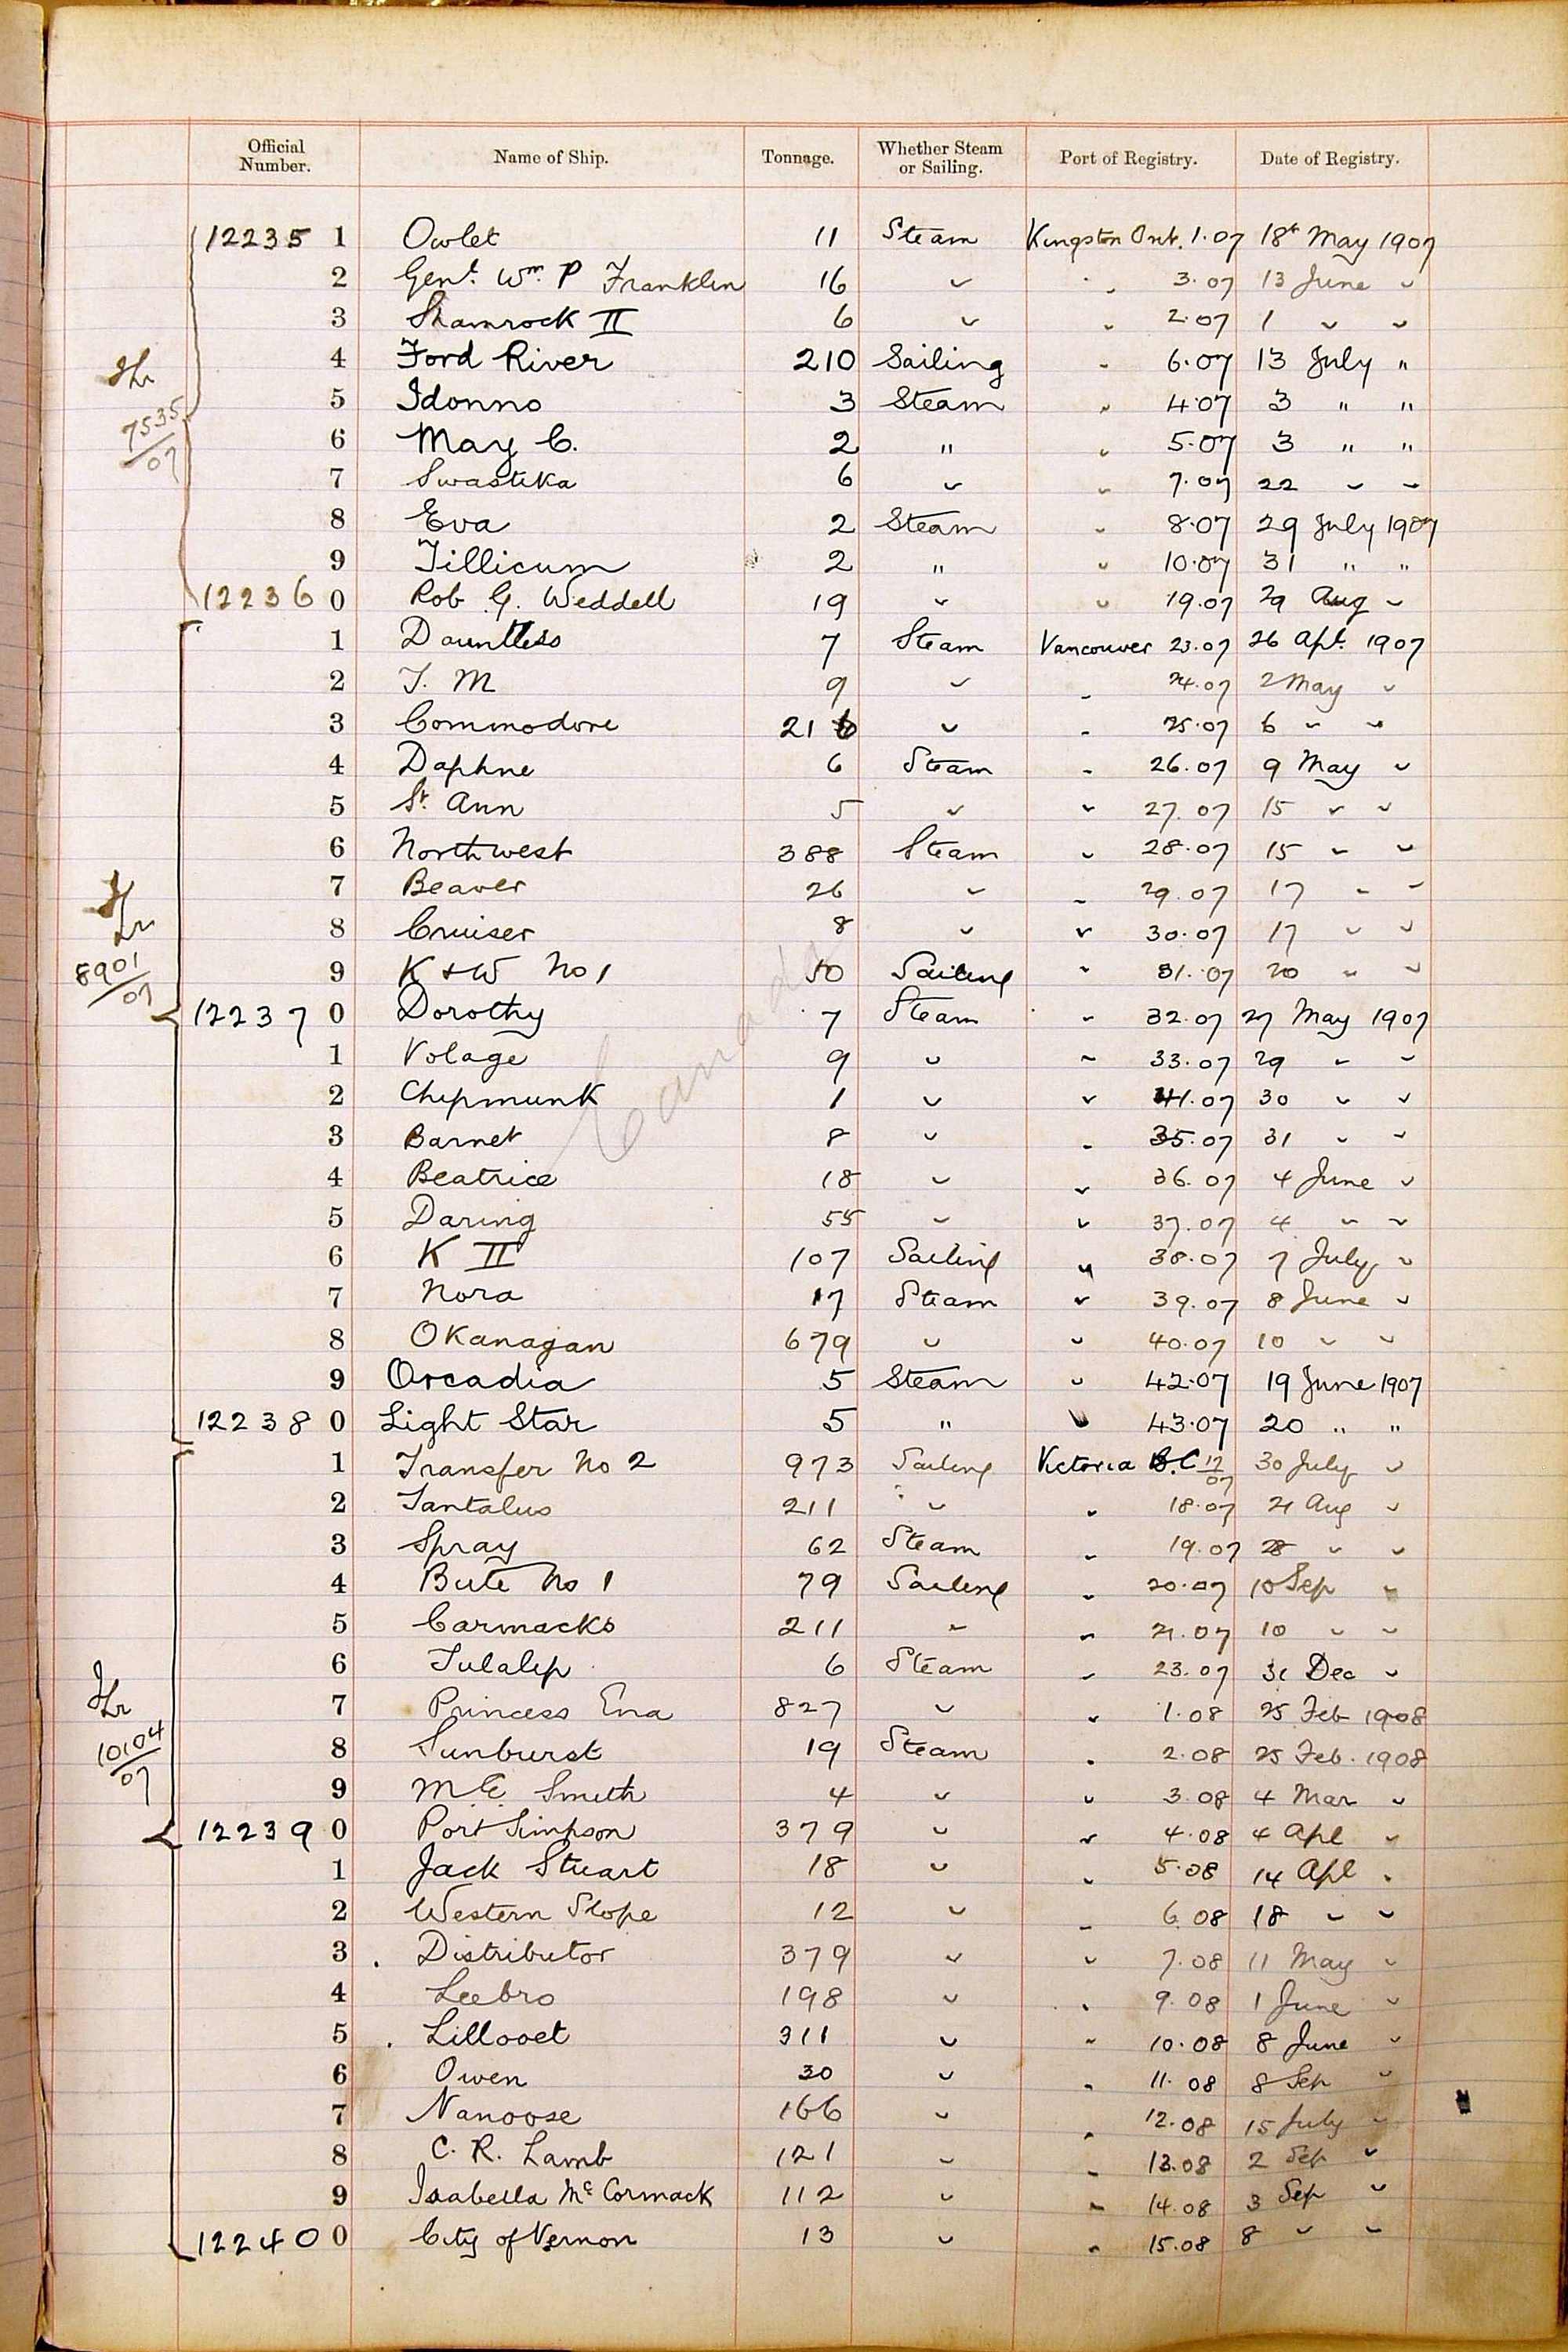 Official Number. Name of Ship. Tonnage. Whether Steam or Sailing. Port of Registry. Date of Registry.
12235 1 Owlet 11 Steam Kingston Ont. 1.07 18t May 1907
2 Genl. Wm. P Franklin 16 " " 3.07 13 June "
3 Shamrock II 6 " " 2.07 1 " "
4 Ford River 210 Sailing " 6.07 13 July "
5 Idonno 3 Steam " 4.07 3 " "
6 May C. 2 " " 5.07 3 " "
7 Swastika 6 " " 7.07 22 " "
8 Eva 2 Steam " 8.07 29 July 1907
9 Tillicum 2 " " 10.07 31 " "
12236 0 Rob G. Weddell 19 " " 19.07 29 Aug "
7535/07
1 Dauntless 7 Steam Vancouver 23.07 26 Apl. 1907
2 T. M 9 " " 24.07 2 May "
3 Commodore 216 " " 25.07 6 " "
4 Daphne 6 Steam " 26.07 9 May "
5 St. Ann 5 " " 27.07 15 " "
6 Northwest 388 Steam " 28.07 15 " "
7 Beaver 26 " " 29.07 17 " "
8 Cruiser 8 " " 30.07 17 " "
9 K & W No 1 50 Sailing " 31.07 20 " "
12237 0 Dorothy 7 Steam " 32.07 27 May 1907
8901/07
1 Volage 9 " " 33.07 29 " "
2 Chipmunk 1 " " 41.07 30 " "
3 Barnet 8 " " 35.07 31 " "
4 Beatrice 18 " " 36.07 4 June "
5 Daring 55 " " 37.07 4 " "
6 K II 107 Sailing " 38.07 7 July "
7 Nora 17 Steam " 39.07 8 June "
8 Okanagan 679 " " 40.07 10 " "
9 Orcadia 5 Steam " 42.07 19 June 1907
12238 0 Light Star 5 " " 43.07 20 " "
Canada
1 Transfer No 2 973 Sailing Victoria B.C 12/07 30 July "
2 Tantalus 211 " " 18.07 21 Aug "
3 Spray 62 Steam " 19.07 28 " "
4 Bute No 1 79 Sailing " 20.07 10 Sep "
5 Carmacks 211 " " 21.07 10 " "
6 Tulalip 6 Steam " 23.07 31 Dec "
7 Princess Ena 827 " " 1.08 25 Feb 1908
8 Sunburst 19 Steam " 2.08 25 Feb. 1908
9 M E Smith 4 " " 3.08 4 Mar "
12239 0 Port Simpson 379 " " 4.08 4 Apl "
10104/07
1 Jack Stuart 18 " " 5.08 14 Apl "
2 Western Slope 12 " " 6.08 18 " "
3 Distributor 379 " " 7.08 11 May "
4 Leebro 198 " " 9.08 1 June "
5 Lillooet 311 " " 10.08 8 June "
6 Owen 30 " " 11.08 8 Sep "
7 Nanoose 166 " " 12.08 15 July "
8 C. R. Lamb 121 " " 13.08 2 Sep "
9 Isabella McCormack 112 " " 14.08 3 Sep "
12240 0 City of Vernon 13 " " 15.08 8 " "